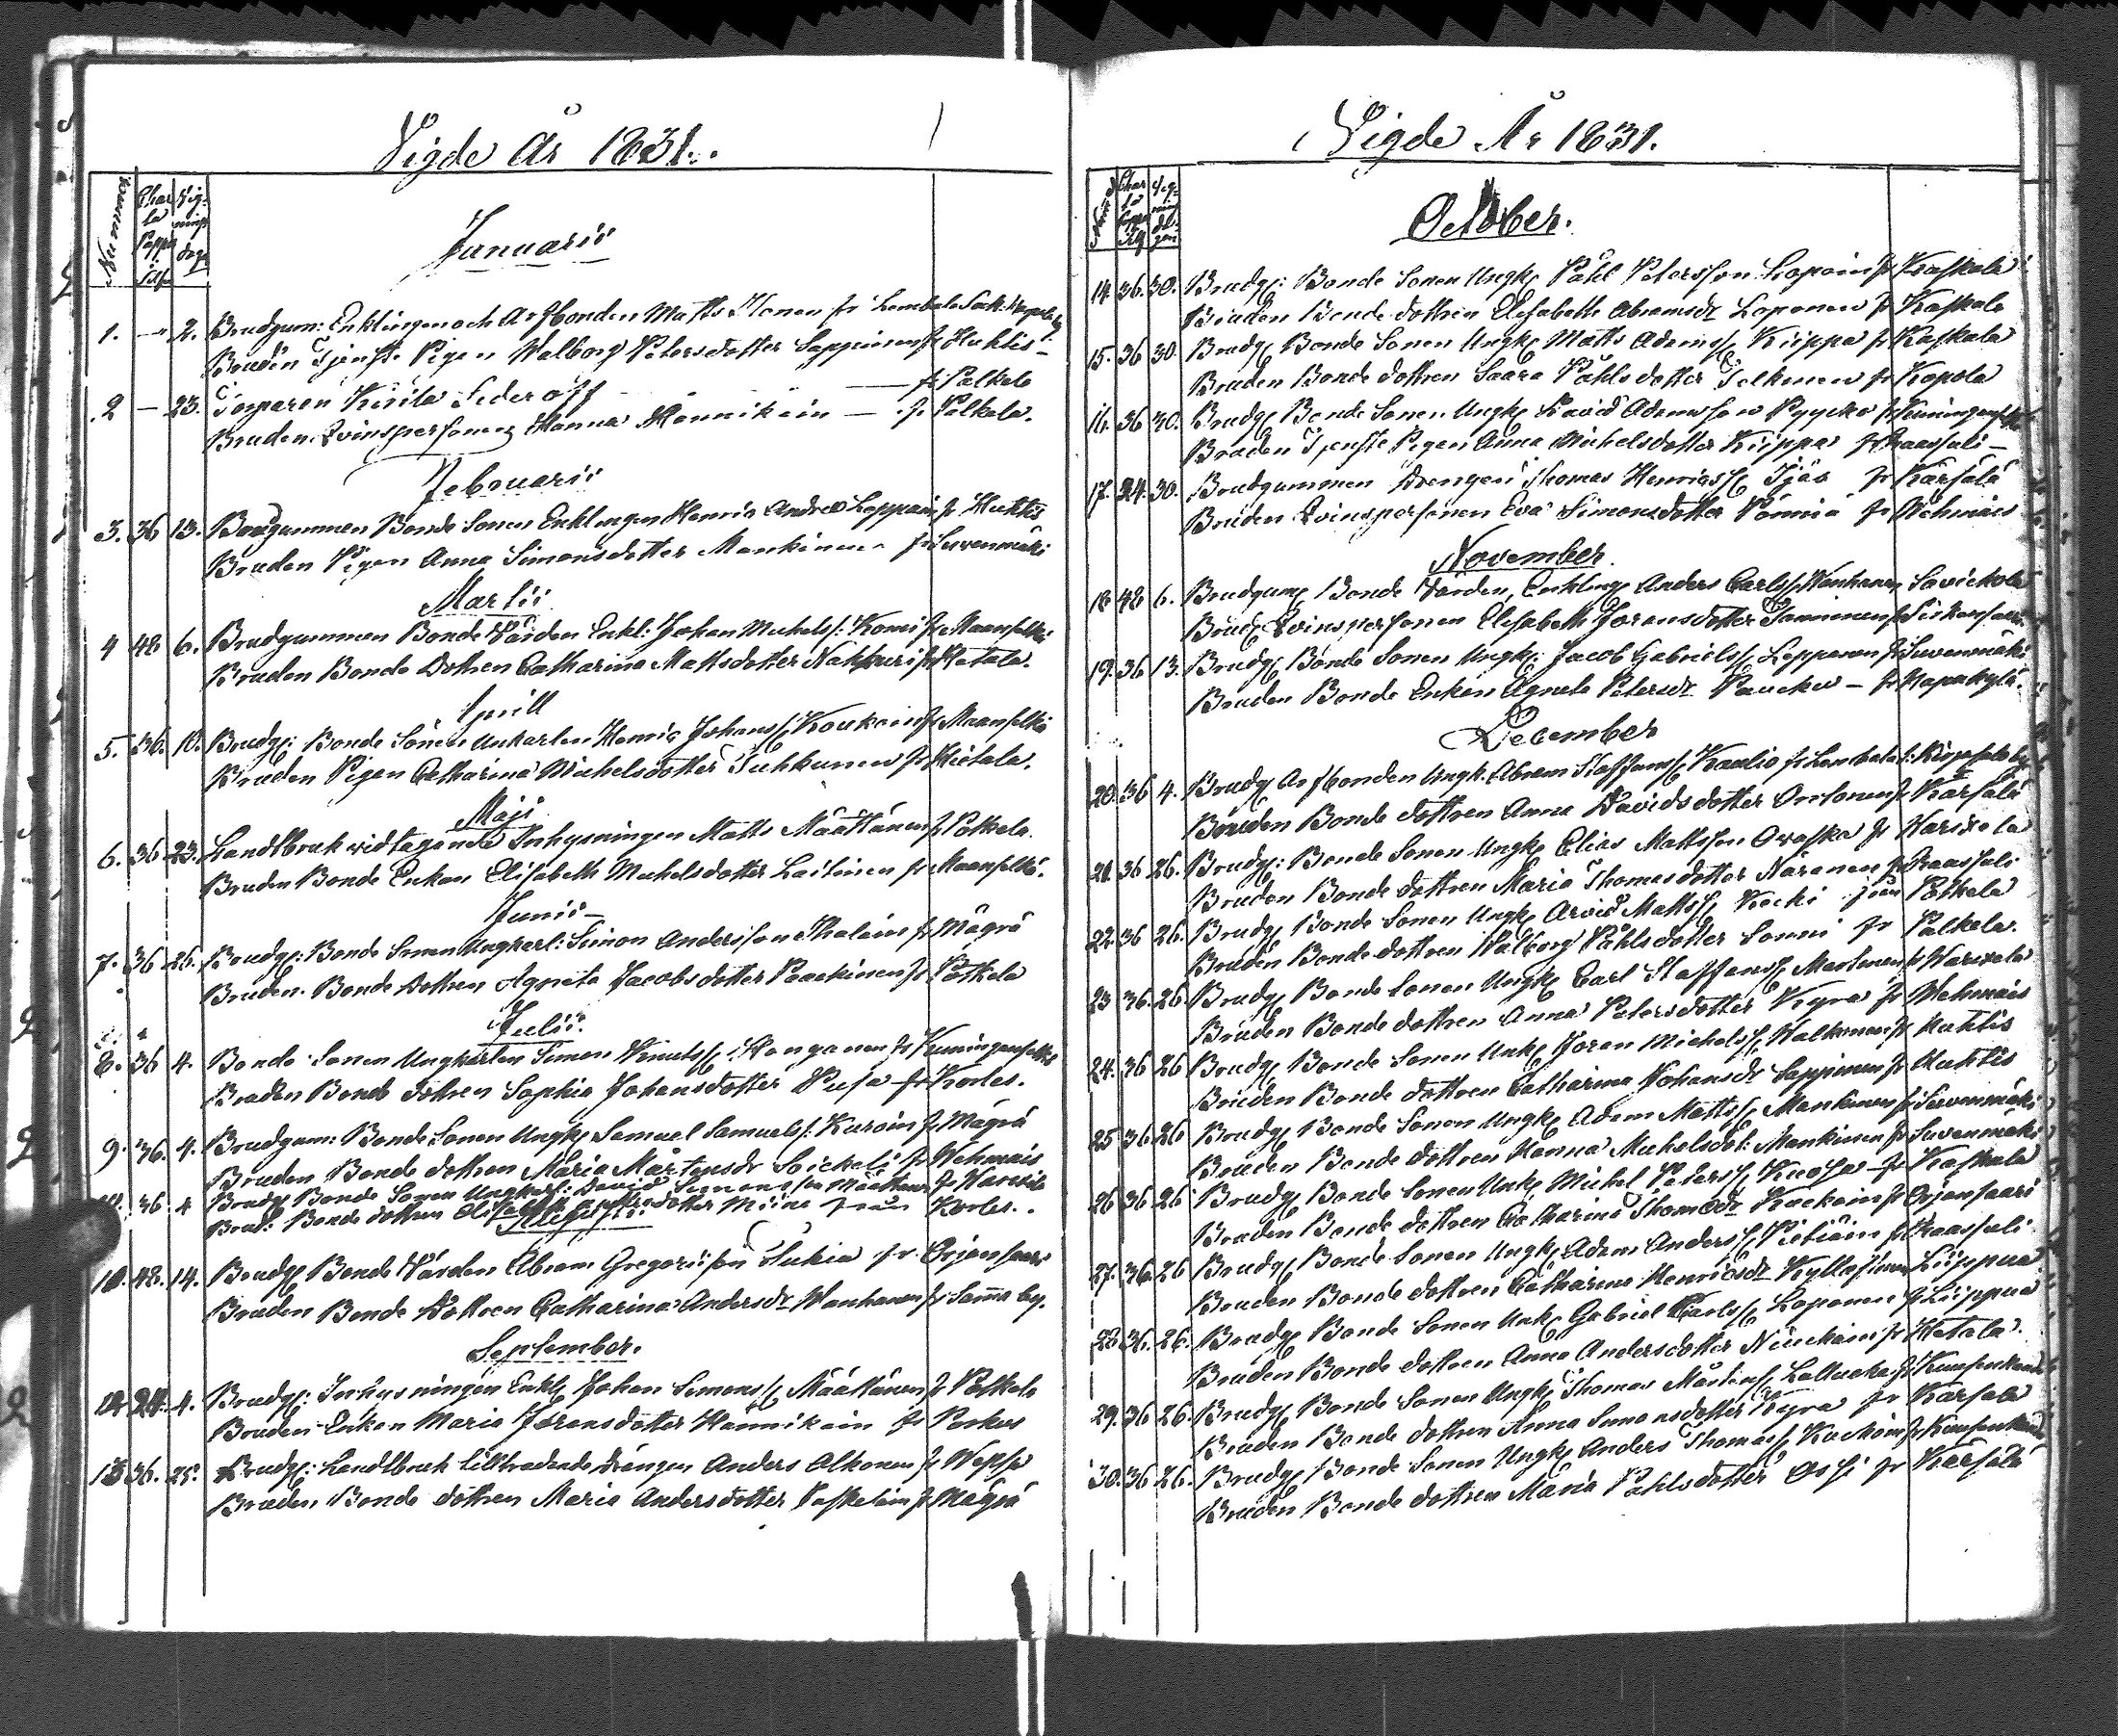 Vigde År 1831.
Numero
Charta
Vignings
dag
Januarii
1. — 2. Brudgum: Enklingen och Arfbonden Matts Ilonen fr Lembala Sock:
Bruden Tjenste Pigan Walborg Petersdotter Seppinen fr Huhtis
2 — 23. Torparen Kirila Federoff — fr Palkela
Bruden Qvinspersonen Hanna Hännikäin — fr Palkela.
Februarii
3. 36 13. Brudgummen Bonde Sonen Enklingen Henric Andrew Leppäin fr Huhtis
Bruden Pigan Anna Simonsdotter Monkinen fr Suvenmäki
Martii
4 48 6. Brudgummen Bonde Värden Enkl: Johan Michelss: Komi fr Maanselkä
Bruden Bonde Dottren Catharina Mattsdotter Nakkuri fr Hetala.
April
5. 36. 10. Brudg: Bonde Sonen Unkarlen Henric Johanss Koukoin fr Maanselkä
Bruden Pigan Catharina Michelsdotter Tuhkunen fr Hietala.
Maji
6. 36 23. Landtbruk vidtagande Inhysningen Matts Määttänen fr Pötkela.
Bruden Bonde Enkan Elisabeth Michelsdotter Laitinen fr Maanselkä.
Junii
7. 36 26. Brudg: Bonde Sonen Ungkarl: Simon Andersson Ihalain fr Mägrä
Bruden Bonde Dottren Agneta Jacobsdotter Paackinen fr Pötkela
Julii.
8. 36 4. Bonde Sonen Ungkarlen Simon Hongonen fr Kuningenselkä
Bruden Bonde dottren Sophia Johansdotter Pusa fr Korles.
9. 36. 4. Brudgum: Bonde Sonen Ungk Samuel Samuels: Karoin fr Mägrä
Bruden Bonde dottren Maria Mårtensdr Loickeli fr Wehmais
36 4 Brudg Bonde Sonen Ungkarl: David Simonsson Määttänen fr Warixela
Brud: Bonde dottren Elisabeth dotter Miina från Korles.
Augusti
10. 48. 14. Brudg Bonde Värden Abram Gregorisson Sukia fr Orjansaari
Bruden Bonde Dottren Catharina Andersdr Wanhanen fr Samma by.
September.
12 24. 4. Brudg: Inhysningen Enkl Johan Simons Määttänen fr Pötkela
Bruden Enkan Maria Jöransdotter Hännikäin fr Porkus
13 36. 25. Brudg: Landtbruk tilltradande drängen Anders Alkonen fr Wepsa
Bruden Bonde dottren Maria Andersdotter Paskelain fr Mägrä
Vigde År 1831.
October.
14. 36. 30. Brudg: Bonde Sonen Ungk Påhl Petersson Lapoin fr Kaskala
Bruden Bonde dottren Elisabeth Abramsdr Loponen fr Kaskala
15. 36 30. Brudg Bonde Sonen Ungk Matts Adams Kiippa fr Kaskala
Bruden Bonde dottren Saara Påhlsdotter Telkinen fr Kopola
16. 36 30. Brudg Bonde Sonen Ungk David Adamsson Pyycko fr Kuningenselkä
Bruden Tjenste Pigan Anna Michelsdotter Kiippa fr Raassuli
17. 24. 30. Brudgummen Drengen Thomas Henrics Ijäs fr Kärsälä
Bruden Qvinspersonen Eva Simonsdotter Pönniä fr Wehmais
November
18 48 6. Brudgum Bonde Värden, Enkling Anders Carls Wanhanen Savickola
Brud Qvinspersonen Elisabeth Jöransdotter Tamminen fr Sickensaari
19. 36 13. Brudg Bonde Sonen Ungk: Jacob Gabriels Lepponen fr Suvenmäki
Bruden Bonde Enkan Agneta Petersdr Pauckw — fr Hapakylä.
December
20. 36 4. Brudg Arfbonden Ungk. Abram Staffans Kaulio fr Lembala S: by
Bruden Bonde dottren Anna Davidsdotter Ontonen fr Kärsälä
21. 36 26. Brudg: Bonde Sonen Ungk Elias Mattsson Owaska fr Warixela
Bruden Bonde dottren Maria Thomasdotter Näränen fr Raassuli
22. 36 26. Brudg Bonde Sonen Ungk Arvid Matts Kecki från Pötkela
Bruden Bonde dottren Walborg Påhlsdotter Sonni fr Palkela.
23 36. 26 Brudg Bonde Sonen Ungk Carl Staffans Martinen fr Warixela
Bruden Bonde dottren Anna Petersdotter Kyrä fr Wehmais
24. 36 26 Brudg Bonde Sonen Unk Jöran Michels Walkonen fr Huhtis
Bruden Bonde dottren Catharina Johansdr Seppinen fr Huhtis
25 36 26 Brudg Bonde Sonen Ungk Adam Matts Monkinen fr Suvenmäki
Bruden Bonde dottren Hanna Michelsdot: Monkinen fr Suvenmäki
26 36 26 Brudg Bonde Sonen Unk Michel Peters Kuosa fr Kaskala
Bruden Bonde dottren Catharina Thomasdr Kuckoin fr Orjansaari
27. 36. 26 Brudg Bonde Sonen Ungk Adam Anders Pietiäin fr Raassuli
Bruden Bonde dottren Catharina Henricsdr Kyllästinen Liippua
28 36. 26. Brudg Bonde Sonen Unk Gabriel Carls Loponen fr Liippua
Bruden Bonde dottren Anna Andersdotter Niuckain fr Hetala.
29. 36 26. Brudg Bonde Sonen Ungk Thomas Mårtens Lallucka fr
Bruden Bonde dottren Anna Simonsdotter Kyrä fr Kärsälä
30. 36 26. Brudg Bonde Sonen Ungk Anders Thomas Kuckoin fr
Bruden Bonde dottren Maria Påhlsdotter Ossi fr Kärsälä